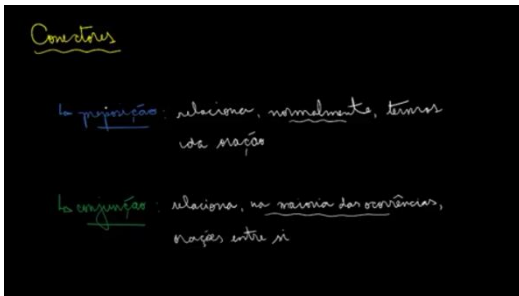 Conectores
↳ preposição: relaciona, normalmente, termos
da oração
↳ conjunção: relaciona, na maioria das ocorrências,
orações entre si